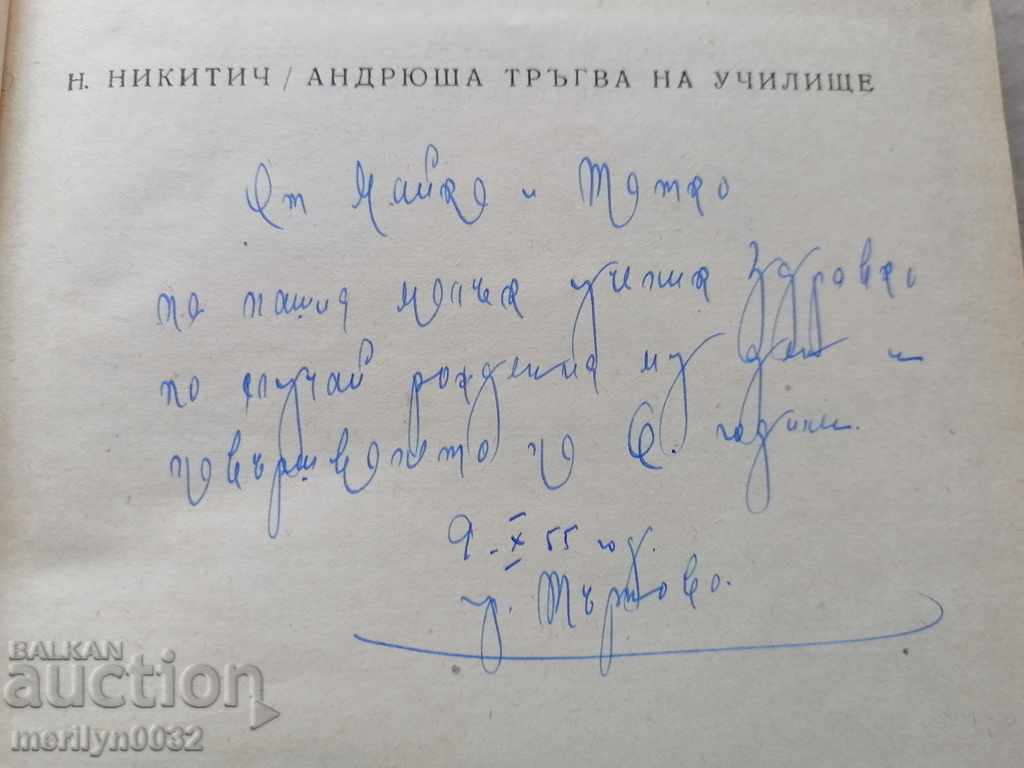 Н. НИКИТИЧ / АНДРЮША ТРЪГВА НА УЧИЛИЩЕ
От Майка и Татко
на нашия Здравко
по случай рождения му ден и
навършването на 6. години.
9. X 55 год.
гр. Търново.
BALKAN
auction
merilyn0032